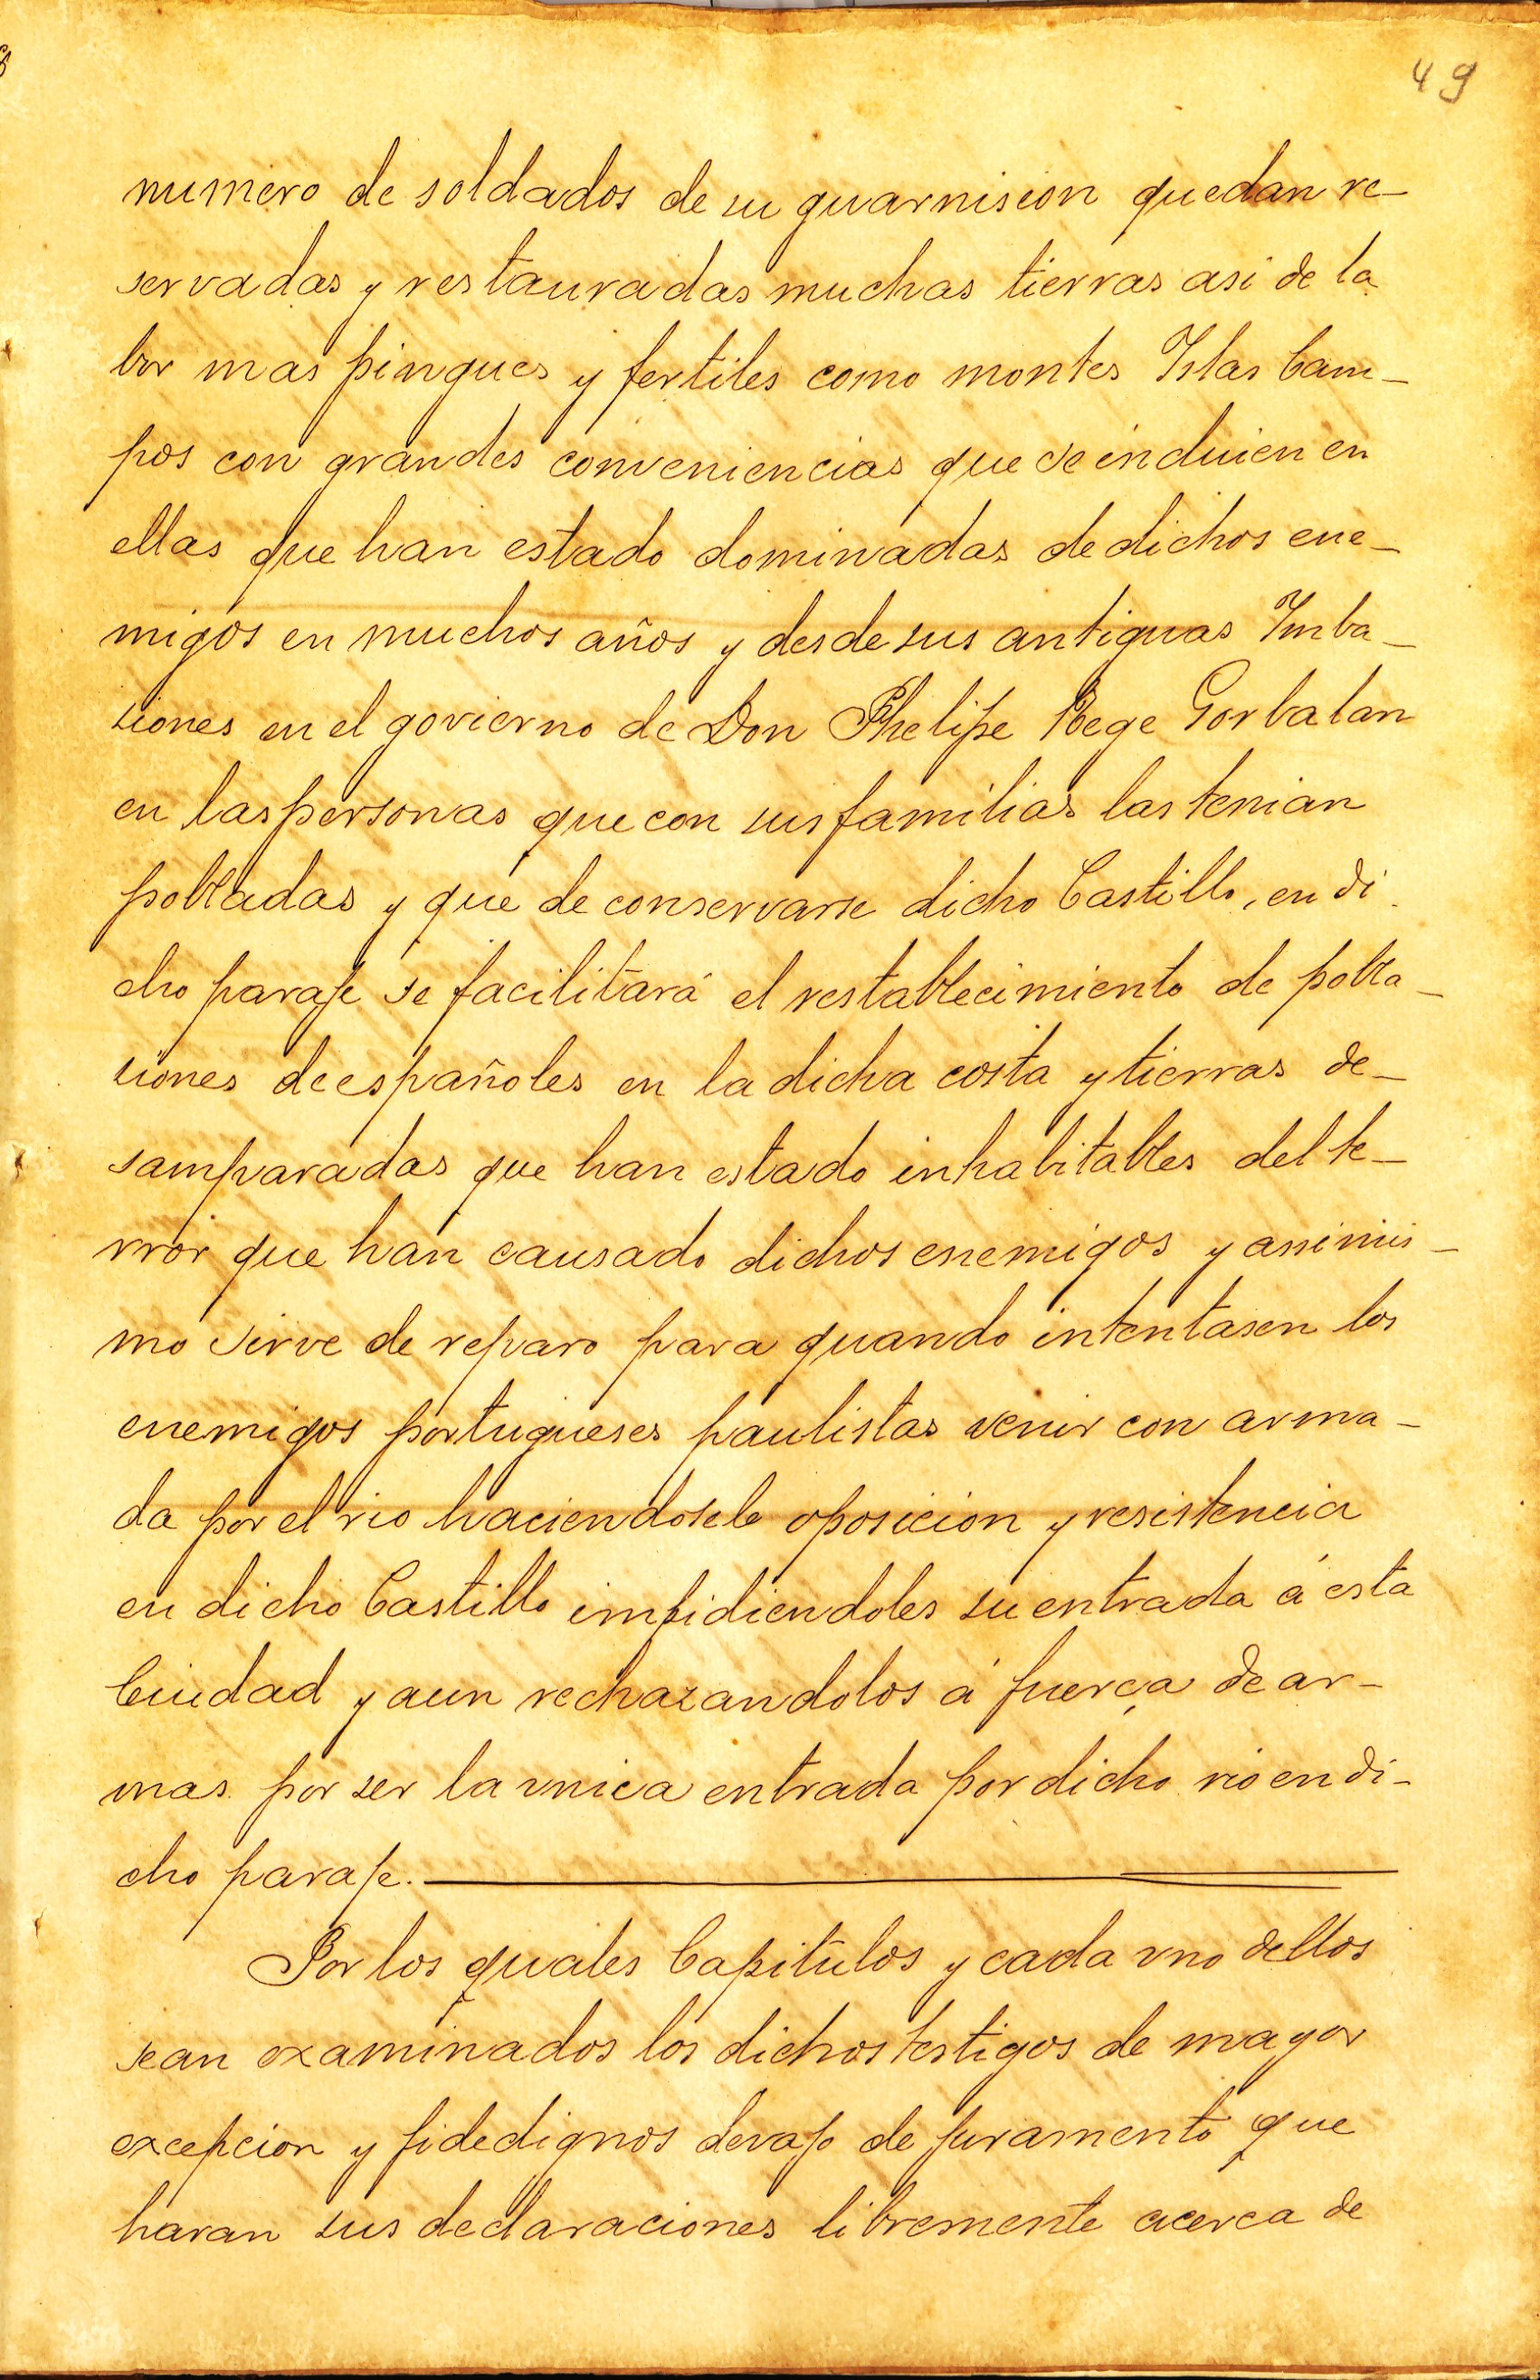 49
numero de soldados de su guarnision quedan re-
servadas y restauradas muchas tierras asi de la
bor mas pingues y fertiles como montes Islas Cam-
pos con grandes conveniencias que se incluien en
ellas que han estado dominadas de dichos ene-
migos en muchos años y desde sus antiguas Imba-
siones en el govierno de Don Phelipe Rege Gorbalan
en las personas que con sus familias las tenian
pobladas y que de conservarse dicho Castillo, en di
cho paraje se facilitará el restablecimiento de pobla-
siones de españoles en la dicha costa y tierras de-
samparadas que han estado inhabitables del te-
rror que han causado dichos enemigos y assimis-
mo sirve de reparo para quando intentasen los
enemigos portugueses paulistas venir con arma-
da por el rio haciendosele oposicion y resistencia
en dicho Castillo impidiendoles su entrada á esta
Ciudad y aun rechazandolos á fuerça de ar-
mas por ser la vnica entrada por dicho rio en di-
cho paraje.
Por los quales Capitulos y cada vno dellos
sean examinados los dichos testigos de mayor
excepcion y fidedignos devajo de juramento que
haran sus declaraciones libremente acerca de